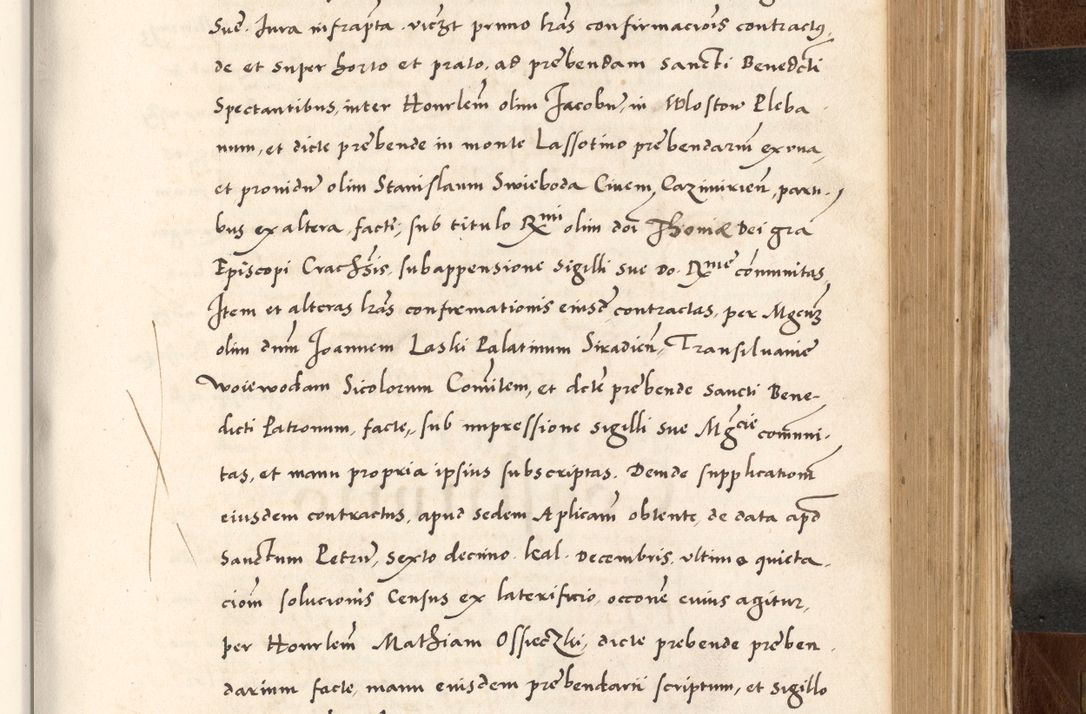 Sue. Iura infrapta. viczt primo lras confirmacois contractq,
de et super horto et prato, ad prebendam Sancti Benedcti
Spectantibus, inter Honrlem olim Iacobu, in Wlostow Pleba
num, et dicte prebende in monte Lassotino prebendariu ex vna,
et prouidu olim Stanislaum Swieboda Ciuem, Cazimirien, parti-
bus ex altera, facti, sub titulo Rmi olim doi Thomæ Dei gra
Episcopi Crachsis, sub appensione Sigilli Sue Do. Rme comunitas,
Item et alteras lras confirmationis eiusd contractus, per Mgcum
olim dnm Ioannem Laski Palatinum Siradien, Transiluanie
Woiewodam Sicolorum Comitem, et dcte prebende Sancti Bene-
dicti Patronum, facte, sub impressione Sigilli Sue Mgcie comuni-
tas, et manu propria ipsius subscriptas. Deinde supplicationem
eiusdem contractus, apud Sedem Aplicam obtente, de data apd
Sanctum Petru, Sexto decimo kal. Decembris, vltimo quieta-
ciom solucionis Census ex laterificio, occone cuius agitur,
per Honrlem Mathiam Ossieczki, dicte prebende preben-
darium facte, manu eiusdem prebendarii scriptum, et Sigillo